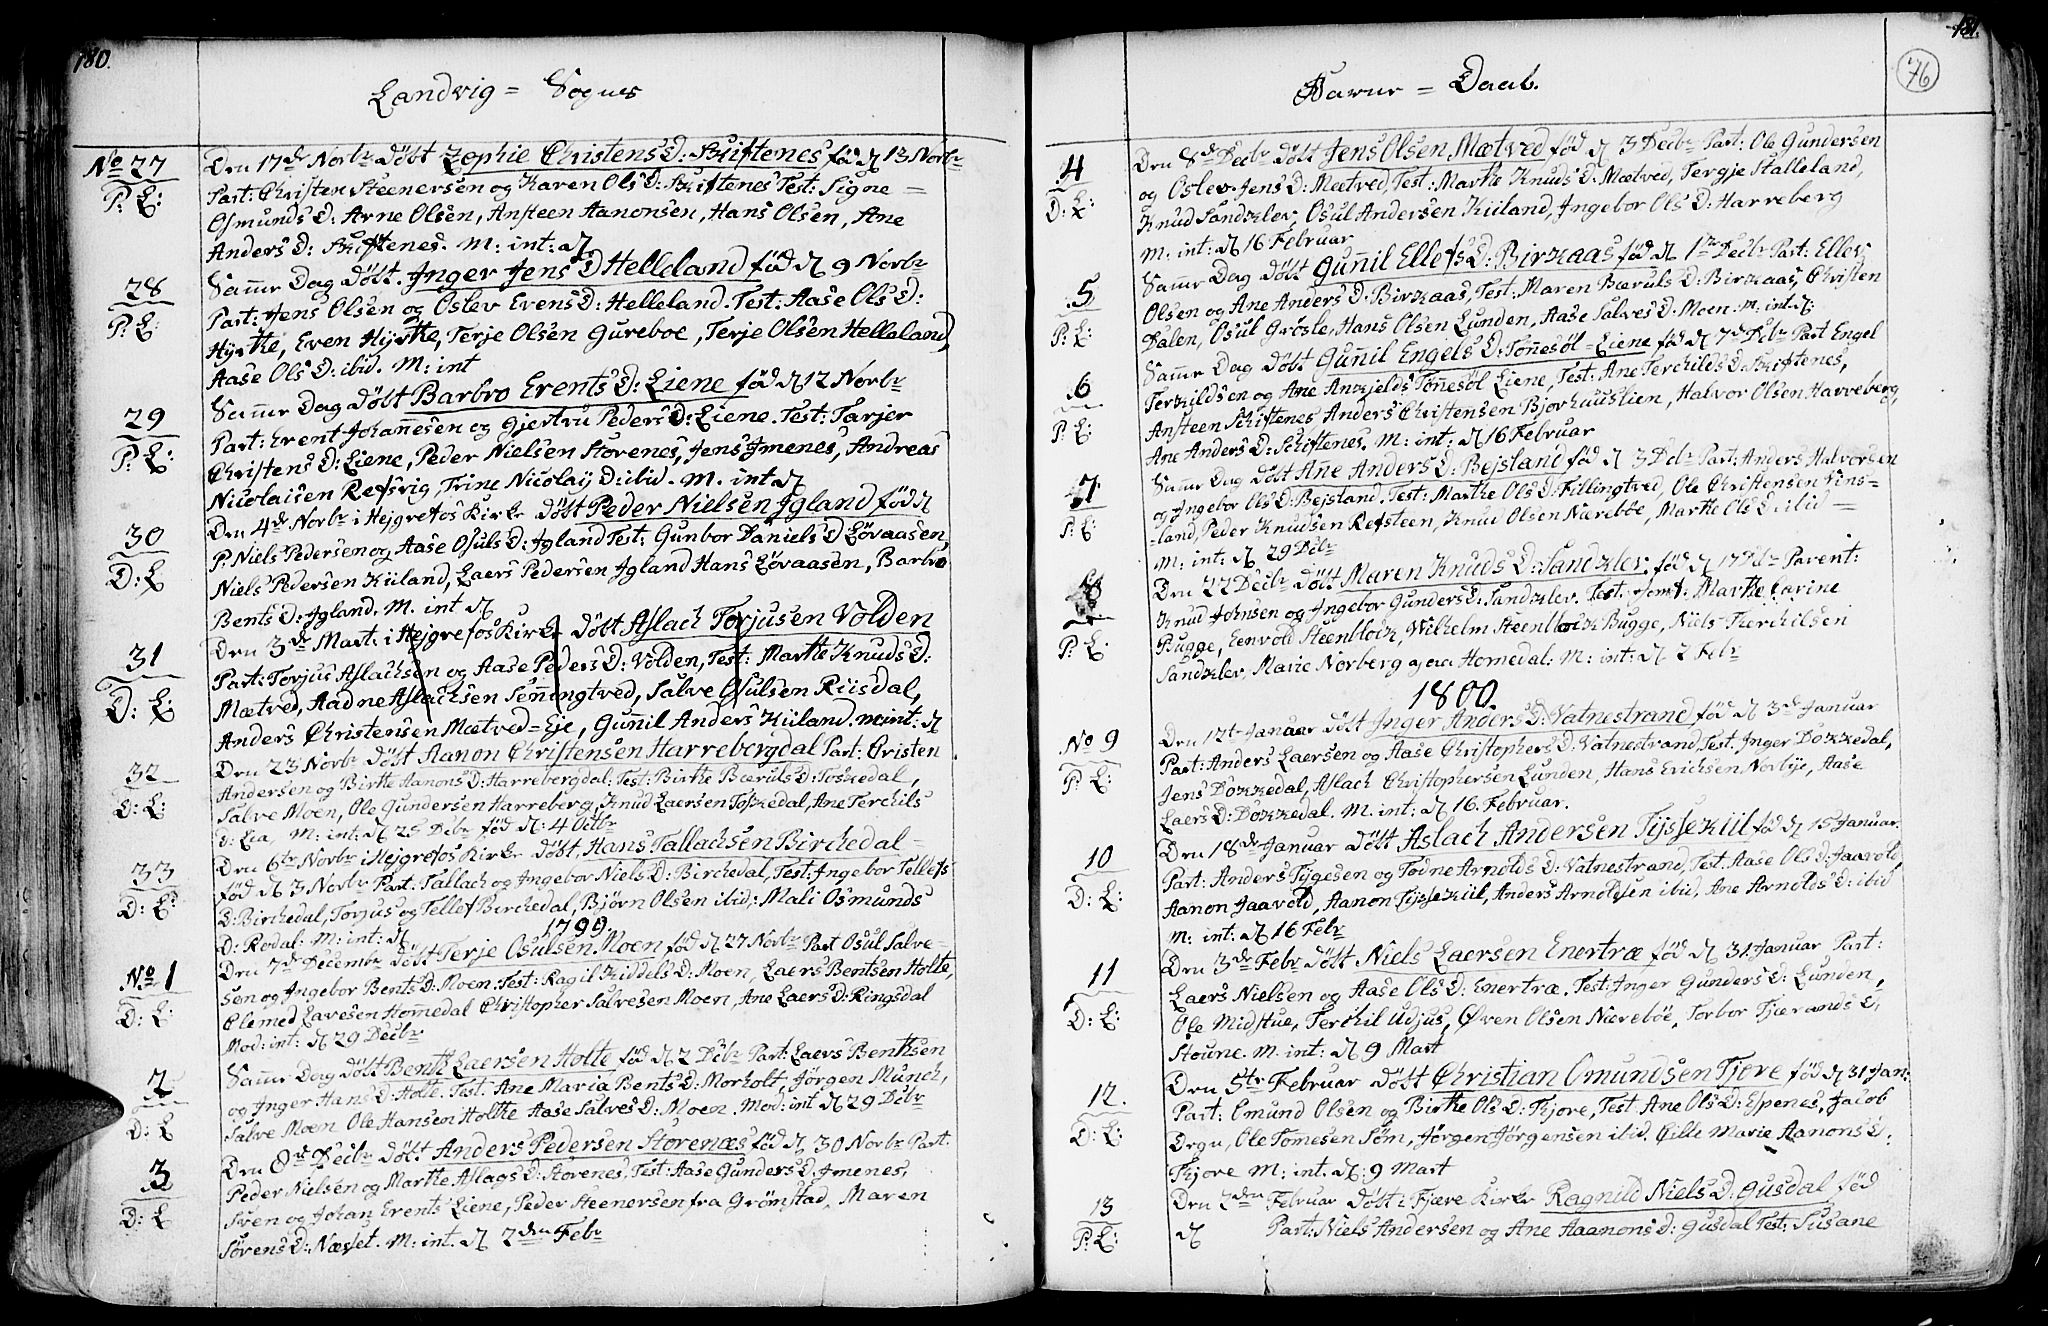 180.
Landvig = Sogns
No 27
P: E:
Den 17de Novbr döbt Zophie Christens D: Skiftenes föd d 13 Novbr
Part: Christen Steenersen og Karen Ols D: Skiftenes Test: Signe =
Osmunds D: Arne Olsen, Ansteen Aanonsen, Hans Olsen, Ane
Anders D: Skiftenes. M: int: d
28
P: E:
Samr Dag döbt. Inger Jens D Helleland föd d 9 Novbr
Part: Jens Olsen og Oslev Evens D: Helleland. Test: Aase Ols D:
Hÿrtke, Even Hÿrtke, Terje Olsen Gureboe, Terje Olsen Helleland,
Aase Ols D: ibid. M: int
29
P: E:
Samr Dag döbt Barbro Erents D: Liene föd d 12 Novbr
Part: Erent Johannesen og Gjertru Peders D: Liene. Test: Tarjer
Christens D: Liene, Peder Nielsen Storenes, Jens Imenes, Andreas
Nicolaisen Refsvig, Trine Nicolaÿ D: ibid. M. int d
30
D: E
Den 4de Novbr i Hejgrefos Kirke döbt Peder Nielsen Igland föd d
P: Niels Pedersen og Aase Osuls D: Igland Test: Gunbor Daniels D Lövaasen,
Niels Pedersen Kiiland, Laers Pedersen Igland Hans Lövaasen, Barbro
Bents D: Igland. M. int d
31
D: E:
Den 3de Mart. i Hejgrefos Kirke döbt Aslach Torjusen Volden
Part: Torjus Aslachsen og Aase Peders D: Volden, Test: Marthe Knuds D:
Mætved, Aadne Aslachsen Senningtved, Salve Osulsen Riisdal,
Anders Christensen Mætved=Eje, Gunnil Anders Kiiland. M int: d
32
D: E:
Den 23 Novbr döbt Aanon Christensen Harrebergdal Part: Cristen
Andersen og Birthe Aanons D: Harrebergdal: Test: Birthe Bæruls D: Toskedal,
Salve Moen, Ole Gundersen Harreberg, Knud Laersen Toskedal, Ane Terchils
D: Lia, M: int: d 25 Decbr föd d: 4 Octbr
33
D: E:
Den 6te Novbr i Hejgrefos Kirke döbt, Hans Tallachsen Birchedal =
föd d 3 Novbr Part: Tallach og Ingebor Niels D: Birchedal, Test: Ingebor Tellefs
D: Birchedal, Torjus og Tellef Birchedal, Bjórn Olsen ibid: Mali Osmunds
D: Rodal: M: int: d
1799.
No 1
D: E:
Den 7de Decembr döbt Terje Osulsen Moen föd d 27 Novbr Part Osul Salve=
sen og Ingebor Bents D: Moen. Test: Ragil Kiddels D: Moen, Laers Bentsen Holte,
Clemed Lavesen Homedal Christopher Salvesen Moen, Ane Laers D: Ringsdal
Mod: int: d 29 Decbr
2
D: E
Samr Dag döbt Benth Laersen Holte föd d 2 Decbr Part: Laers Benthsen
og Inger Hans D: Holte. Test: Ane Maria Bents D: Morholt, Jörgen Munch,
Salve Moen Ole Hansen Holthe Aase Salves D: Moen. Mod: int d 29 Decbr
3
D: E
Den 8de Decbr döbt Anders Pedersen Storenæs föd d 30 Novbr Part:
Peder Nielsen og Marthe Aslags D: Storenes, Test: Aase Gunders D: Imenes,
Sven og Johan Erents Liene, Peder Steenersen fra Grömstad, Maren
Sörens D: Næsset. M: int. d 2den Febr
181.
76
Barne = Daab.
4
D: E:
Den 8de Decbr döbt Jens Olsen Mætved föd d 3 Decbr Part: Ole Gundersen
og Oslev Jens D: Mætved, Test: Marthe Knuds D: Mætved, Tergje Stalleland,
Knud Sandklev, Osul Andersen Kiiland, Ingebor Ols D: Harreberg
M. int: d 16 Februar
5
P: E:
Samr Dag döbt Gunnil Ellefs D: Birkaas föd d 1ste Decbr Part: Ellev
Olsen og Ane Anders D: Birkaas, Test: Maren Bæruls D: Birkaas, Christen
Dalen, Osul Grösle, Hans Olsen Lunden, Aase Salves D: Moen. M: int: d:
6
P: E:
Samr Dag döbt Gunnil Engels D: Tönnesöl=Liene föd d 7de Decbr Part Engel
Terkildsen og Ane Ankjelds Tönnesöl Liene, Test: Ane Terchilds D: Skiftenes,
Ansteen Schiftenes Anders Christensen Bjorhuustien, Halvor Olsen Harreberg,
Ane Anders D: Schiftenes. M: int: d 16 Februar
7
P: E:
Samr Dag döbt Ane Anders D: Bejsland föd d 3 Decbr Part: Anders Halvorsen
og Ingebor Ols D: Bejsland. Test: Marthe Ols D: Fillingtved, Ole Christensen Vins=
=land, Peder Knudsen Refsteen, Knud Olsen Næreböe, Marthe Ols D: ibid =
M: int: d 29 Decbr
8
P: E:
Den 22 Decbr döbt Maren Knuds D: Sandklev föd d 17 Decbr Parent:
Knud Johnsen og Ingebor Gunders D: Sandklev. Test: Jomf: Marthe Carine
Bugge, Eenvold Steenblock, Wilhelm Steenblock Bugge, Niels Terchilsen
Sandklev, Marie Norberg a/ Homedal: M: int: d 2 Febr
1800.
No 9
P: E:
Den 12te Januar döbt Inger Anders D: Vatnestrand föd d 3de Januar
Part: Anders Laersen og Aase Christophers D: Vatnestrand, Test: Inger Dokkedal,
Jens Dokkedal, Aslach Christophersen Lunden, Hans Erichsen Norbÿe, Aase
Laers D: Dokkedal. M. int: d 16. Februar.
10
D: E:
Den 18de Januar döbt Aslach Andersen Tÿssekiil föd d 15 Januar.
Part: Anders Tÿgesen og Todne Arnolds D: Vatnestrand, Test: Aase Ols D: Jaavold,
Aanon Jaavold, Aanon Tÿssekiil, Anders Arnoldsen ibid, Ane Arnolds D: ibid
M: int: d 16 Febr
11
D: E:
Den 3de Febr döbt Niels Laersen Enertræ föd d 31 Januar Part:
Laers Nielsen og Aase Ols D: Enertræ. Test: Inger Gunders D: Lunden,
Ole Midstue, Terchil Udjus, Öven Olsen Nærebóe, Torbor Tjærands D,
Stoune. M. int: d 9 Mart
12.
D: E:
Den 5te Februar döbt Christian Omundsen Fjore föd d 31 Jan:
Part: Omund Olsen og Birthe Ols D: Fjore, Test: Ane Ols D: Espenes, Jacob
Drgu, Ole Tomesen Söm, Jörgen Jörgensen ibid. Cille Marie Aanons D:
Fjore M: int: d: 9 Mart
13
P: E:
Den 2den Februar döbt i Fjære Kirke Ragnild Niels D: Gusdal föd
d Part: Niels Andersen og Ane Aaanons D: Gusdal Test: Susane